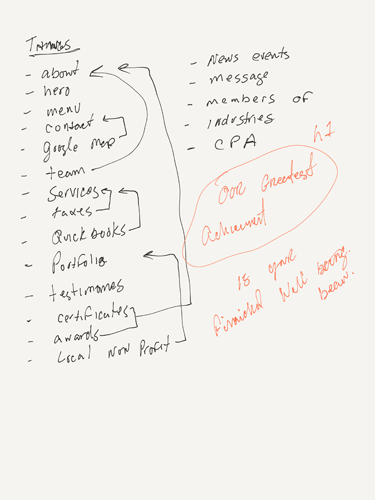 Things
- about
- hero
- menu
- contact
- Google map
- team
- Services
- taxes
- QuickBooks
- Portfolio
- testimonies
- certificates
- awards
- Local Non Profit
- News events
- message
- members of
- industries
- CPA
h1
Our Greatest
Achievment
is your
finicial Well being.